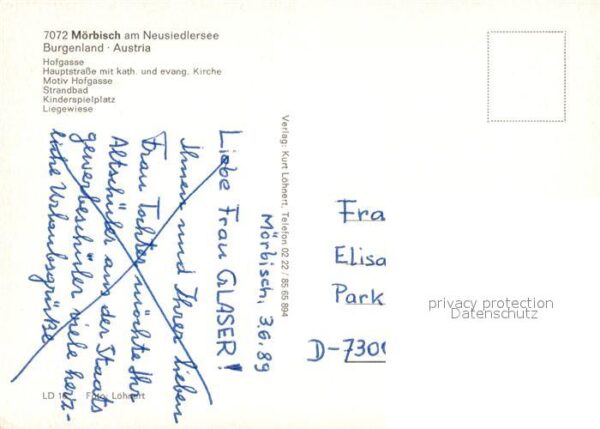 7072 Mörbisch am Neusiedlersee
Burgenland · Austria
Hofgasse
Hauptstraße mit kath. und evang. Kirche
Motiv Hofgasse
Strandbad
Kinderspielplatz
Liegewiese
Verlag: Kurt Löhnert, Telefon 02 22 / 85 65 894
Mörbisch, 3.6.89
Liebe Frau GLASER!
Ihnen und Ihrer lieben
Frau Tochter möchte Ihr
Altschüler aus der Staats
gewerbeschüler viele herz-
liche Urlaubsgrüße
Fra
Elisa
Park
D-7300
privacy protection
Datenschutz
LD
Foto: Löhnert